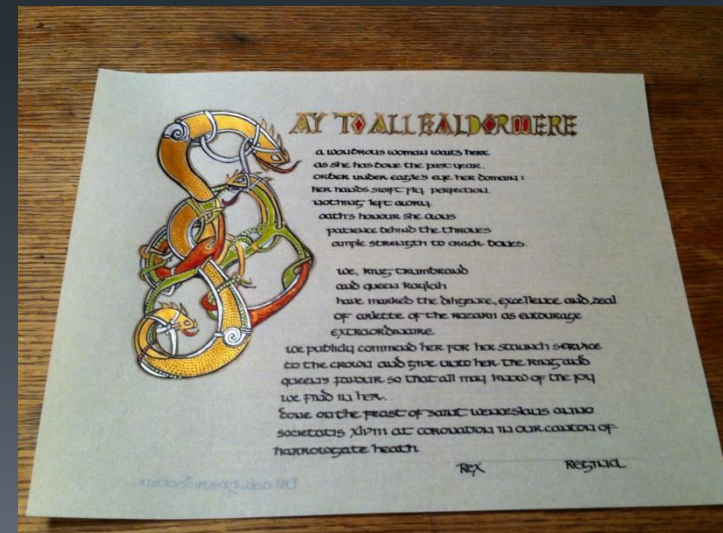 SAY TO ALL EALDORMERE
a wondrous woman waits here
as she has done the past year.
order under eagle's eye her domain:
her hands swift fly perfection.
nothing left awry.
oath's honour she owns
patience behind the thrones
ample strength to crack bones.
we, king trumbrand
and queen kaylah
have marked the diligence, excellence and zeal
of arlette of the mazarn as entourage
extraordinaire.
we publicly commend her for her staunch service
to the crown and give unto her the king and
queen's favour so that all may know of the joy
we find in her.
done on the feast of saint wenceslaus anno
societatis xlviii at coronation in our canton of
harrowgate heath.
rex regina